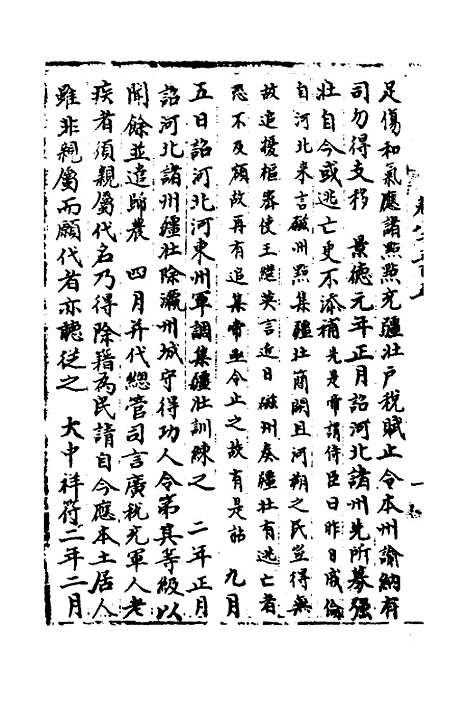 足傷和氣應諸點充彊壯户稅賦止令本州諭納有
司勿得支移　景德元年正月詔河北諸州先所募强
壯自今或逃亡更不添補先是帝謂侍臣曰昨日戚倫
自河北來言磁州點集彊壯簡閱且河朔之民豈得無
故追擾樞密使王繼英言近日磁州奏彊壯有逃亡者
恐不及額故再有追集常亟令止之故有是詔　九月
五日詔河北河東州軍調集彊壯訓練之　二年正月
詔河北諸州彊壯除瀛州城守得功人令第其等級以
聞餘並遣歸農　四月并代總管司言廣税充軍人老
疾者須親屬代名乃得除籍為民請自今應本土居人
雖非親屬而願代者亦聽從之　大中祥符二年二月